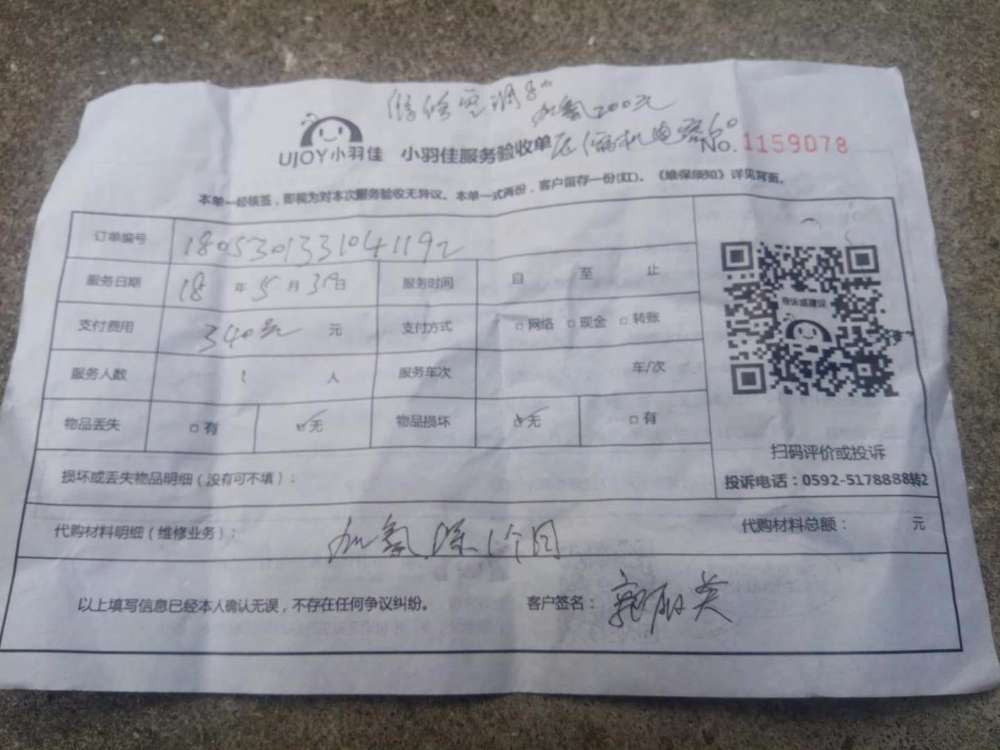 维修空调80
加氟200元
UJOY小羽佳 小羽佳服务验收单 压缩机电容60 No.1159078
本单一经核签，即视为对本次服务验收无异议。本单一式两份，客户留存一份(红)。《维保须知》详见背面。
订单编号 1805301331041192
服务日期 18 年 5 月 31日 服务时间 自 至 止
支付费用 340元 元 支付方式 □网络 □现金 □转账
服务人数 1 人 服务车次 车/次
物品丢失 □有 ☑无 物品损坏 ☑无 □有
投诉或建议
扫码评价或投诉
投诉电话：0592-5178888转2
损坏或丢失物品明细（没有可不填）：
代购材料明细（维修业务）： 加氟 保1个月 代购材料总额： 元
以上填写信息已经本人确认无误，不存在任何争议纠纷。 客户签名：郭